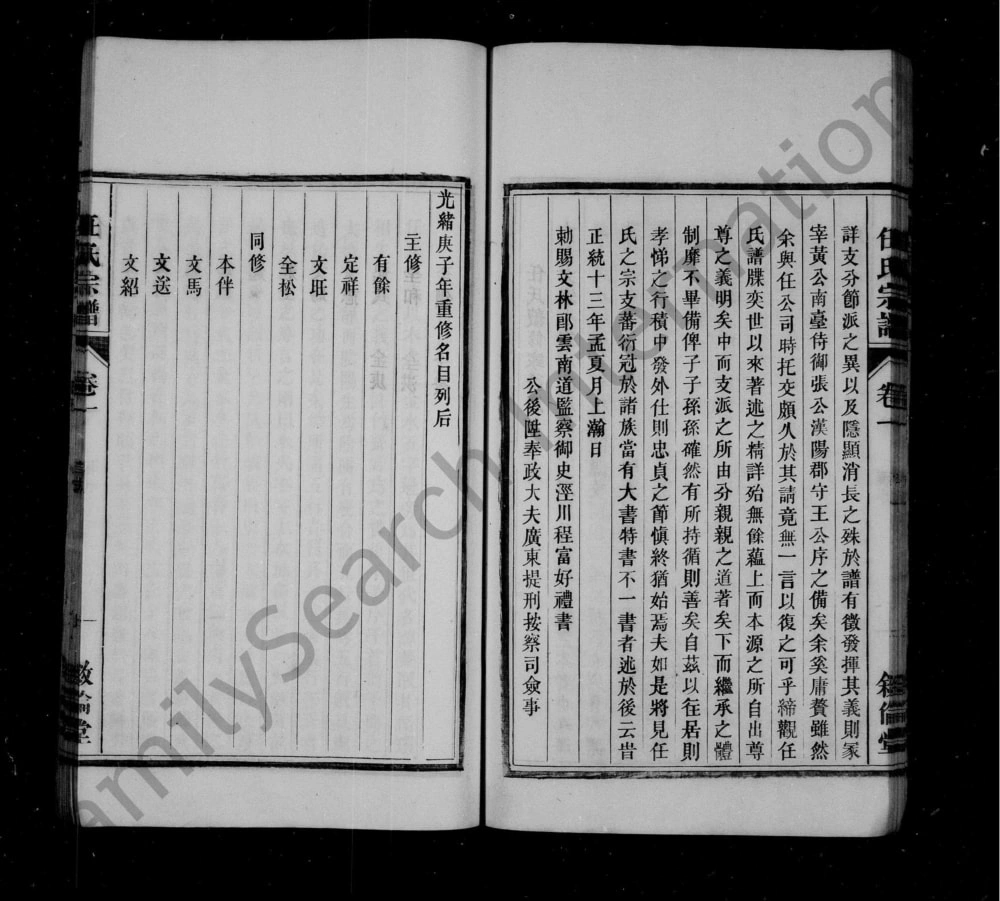 任氏宗譜
卷一
敘倫堂
詳支分節派之異以及隱顯消長之殊於譜有徵發揮其義則冢
宰黃公南臺侍御張公漢陽郡守王公序之備矣余奚庸贅雖然
余與任公司時托交頗久於其請竟無一言以復之可乎締觀任
氏譜牒奕世以來著述之精詳殆無餘蘊上而本源之所自出尊
尊之義明矣中而支派之所由分親親之道著矣下而繼承之之體
制靡不畢備俾子子孫孫確然有所持循則善矣自茲以往居則
孝悌之行積中發外仕則忠貞之節慎終猶始焉夫如是將見任
氏之宗支蕃衍冠於諸族當有大書特書不一書者述於後云昔
正統十三年孟夏月上瀚日
勅賜文林郎雲南道監察御史涇川程富好禮書
公後陞奉政大夫廣東提刑按察司僉事
光緒庚子年重修名目列后
主修
有餘
定祥
文旺
全松
同修
本伴
文馬
文送
文紹
任氏宗譜
卷一
敘倫堂
FamilySearch International